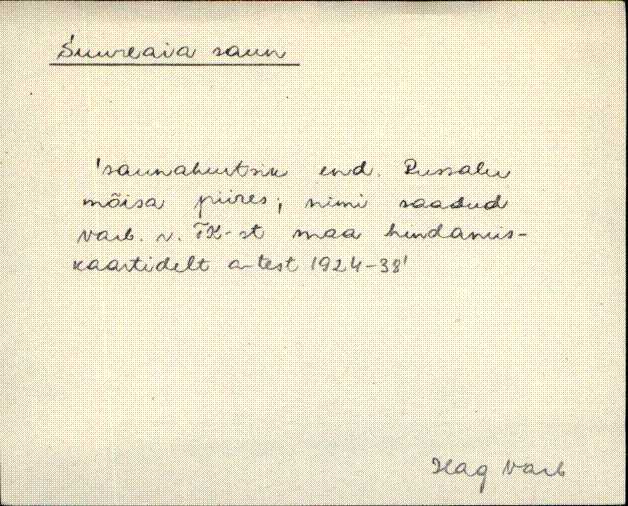 Śuureaia saun
'saunahurtsik end. Pussalu
mõisa piires; nimi saadud
Varb. v. TK-st maa hindamis-
kaartidelt a-test 1924-38'
Hag Varb